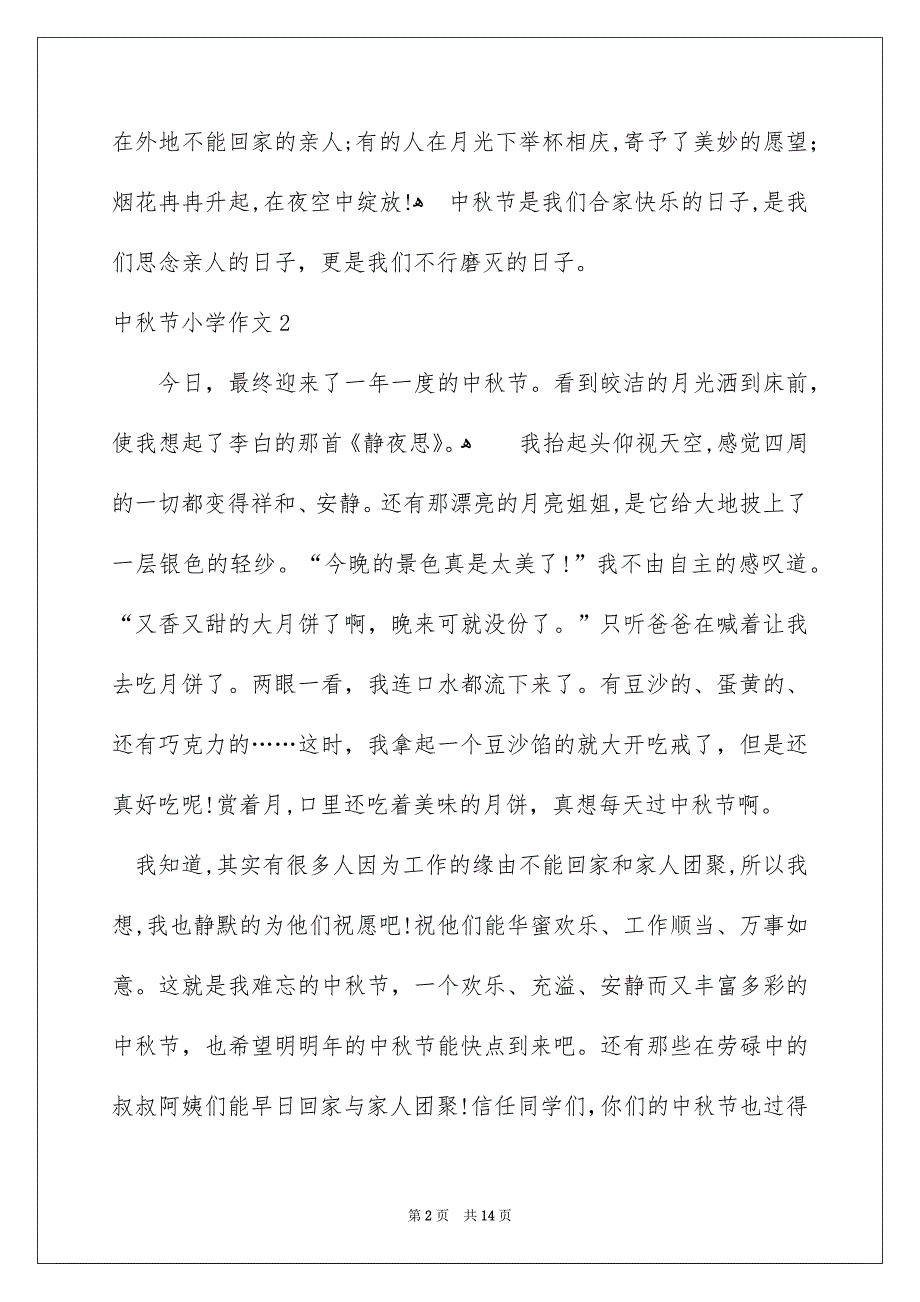 在外地不能回家的亲人;有的人在月光下举杯相庆,寄予了美妙的愿望;
烟花冉冉升起,在夜空中绽放!ﻫ　中秋节是我们合家快乐的日子,是我
们思念亲人的日子，更是我们不行磨灭的日子。
中秋节小学作文 2
今日，最终迎来了一年一度的中秋节。看到皎洁的月光洒到床前，
使我想起了李白的那首《静夜思》。ﻫ　　我抬起头仰视天空,感觉四周
的一切都变得祥和、安静。还有那漂亮的月亮姐姐,是它给大地披上了
一层银色的轻纱。“今晚的景色真是太美了!”我不由自主的感叹道。
“又香又甜的大月饼了啊，晚来可就没份了。”只听爸爸在喊着让我
去吃月饼了。两眼一看，我连口水都流下来了。有豆沙的、蛋黄的、
还有巧克力的……这时，我拿起一个豆沙馅的就大开吃戒了，但是还
真好吃呢!赏着月,口里还吃着美味的月饼，真想每天过中秋节啊。
我知道,其实有很多人因为工作的缘由不能回家和家人团聚,所以我
想,我也静默的为他们祝愿吧!祝他们能华蜜欢乐、工作顺当、万事如
意。这就是我难忘的中秋节，一个欢乐、充溢、安静而又丰富多彩的
中秋节，也希望明明年的中秋节能快点到来吧。还有那些在劳碌中的
叔叔阿姨们能早日回家与家人团聚!信任同学们,你们的中秋节也过得
第 2 页 共 14 页